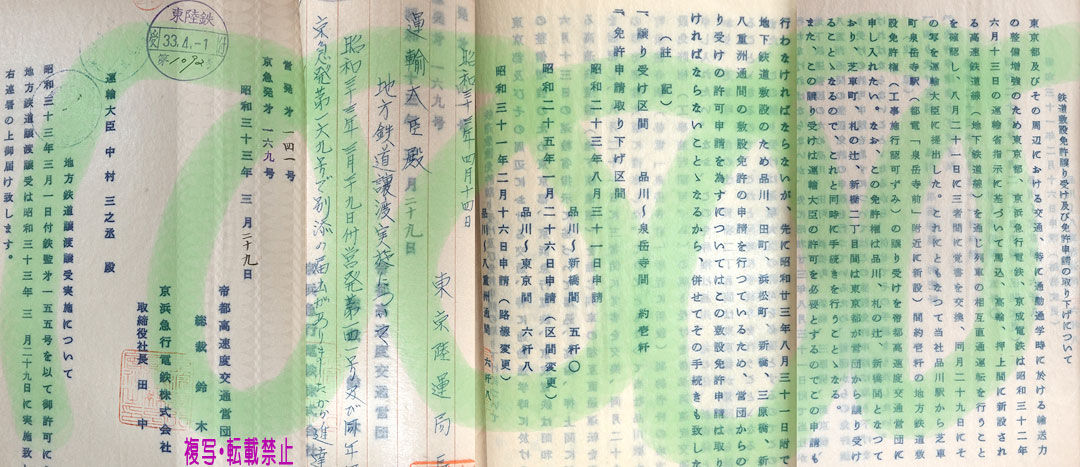 鉄道敷設免許譲り受け及び免許申請の取り下げについて
東京都及びその周辺における交通、特に通勤通学時に於ける輸送力
の整備増強のため東京都、京浜急行電鉄、京成電鉄は昭和三十二年
六月十三日の運輸省指示に基づいて馬込、高輪、押上間に新設され
る高速鉄道線(地下鉄道線)を通じ列車の相互直通運転を行うこと
を確認し、八月二十一日に三者間に覚書を交換、同月二十九日にそ
の写を運輸大臣に提出した。これにともなつて当社品川駅から芝車
町泉岳寺駅(都電「泉岳寺前」附近に新設)間約壱粁の地方鉄道
敷設権(工事施行認可ずみ)の譲り受けを帝都高速度交通営団に
申し入れたい。なお、この免許権は品川、札の辻、新橋間となつて
おり、芝車町、札の辻、新橋二丁目間は東京都が営団から譲り受け
ることゝなるので、これと同時に手続きを行うことゝなる。
また、この譲り受けは運輸大臣の許可を必要とするのでこの申請も
行わなければならないが、先に昭和廿三年八月三十一日附で
地下鉄道敷設のため品川、田町、浜松町、新橋、三原橋、新
八重洲通間の敷設免許の申請を行つているため、営団からの
り受けの許可申請を為すについてはこの敷設免許申請は取り
ければならないことゝなるから、併せてその手続きも致した
(註 記)
一、譲り受け区間 品川〜泉岳寺間 約壱粁
一、免許申請取り下げ区間
昭和二十三年八月三十一日申請
品川〜新橋間 五粁〇
昭和二十五年一月二十六日申請(区間変更)
品川〜東京間 六粁八
昭和三十一年二月十六日申請(路線変更)
品川〜八重洲通間 六粁八
昭和三十三年四月十四日
東京陸運局長
運輸大臣殿
地方鉄道譲渡実施について
昭和三十三年三月二十九日付営発第一四一号及び同年
京急発第一六九号で別添の届出がありましたから進達
東陸鉄
受 33.4.-1 付
第1092号
営発才一四一号
京急発才一六九号
昭和三十三年 三月二十九日
帝都高速度交通営団
総裁 鈴木
京浜急行電鉄株式会社
取締役社長 田中
運輸大臣 中村三之丞 殿
地方鉄道譲渡譲受実施について
昭和三十三年三月一日付鉄監才一五五号を以て御許可に
地方鉄道譲渡譲受は昭和三十三年 三月二十九日に実施致し
右連署の上御届け致します。
複写・転載禁止